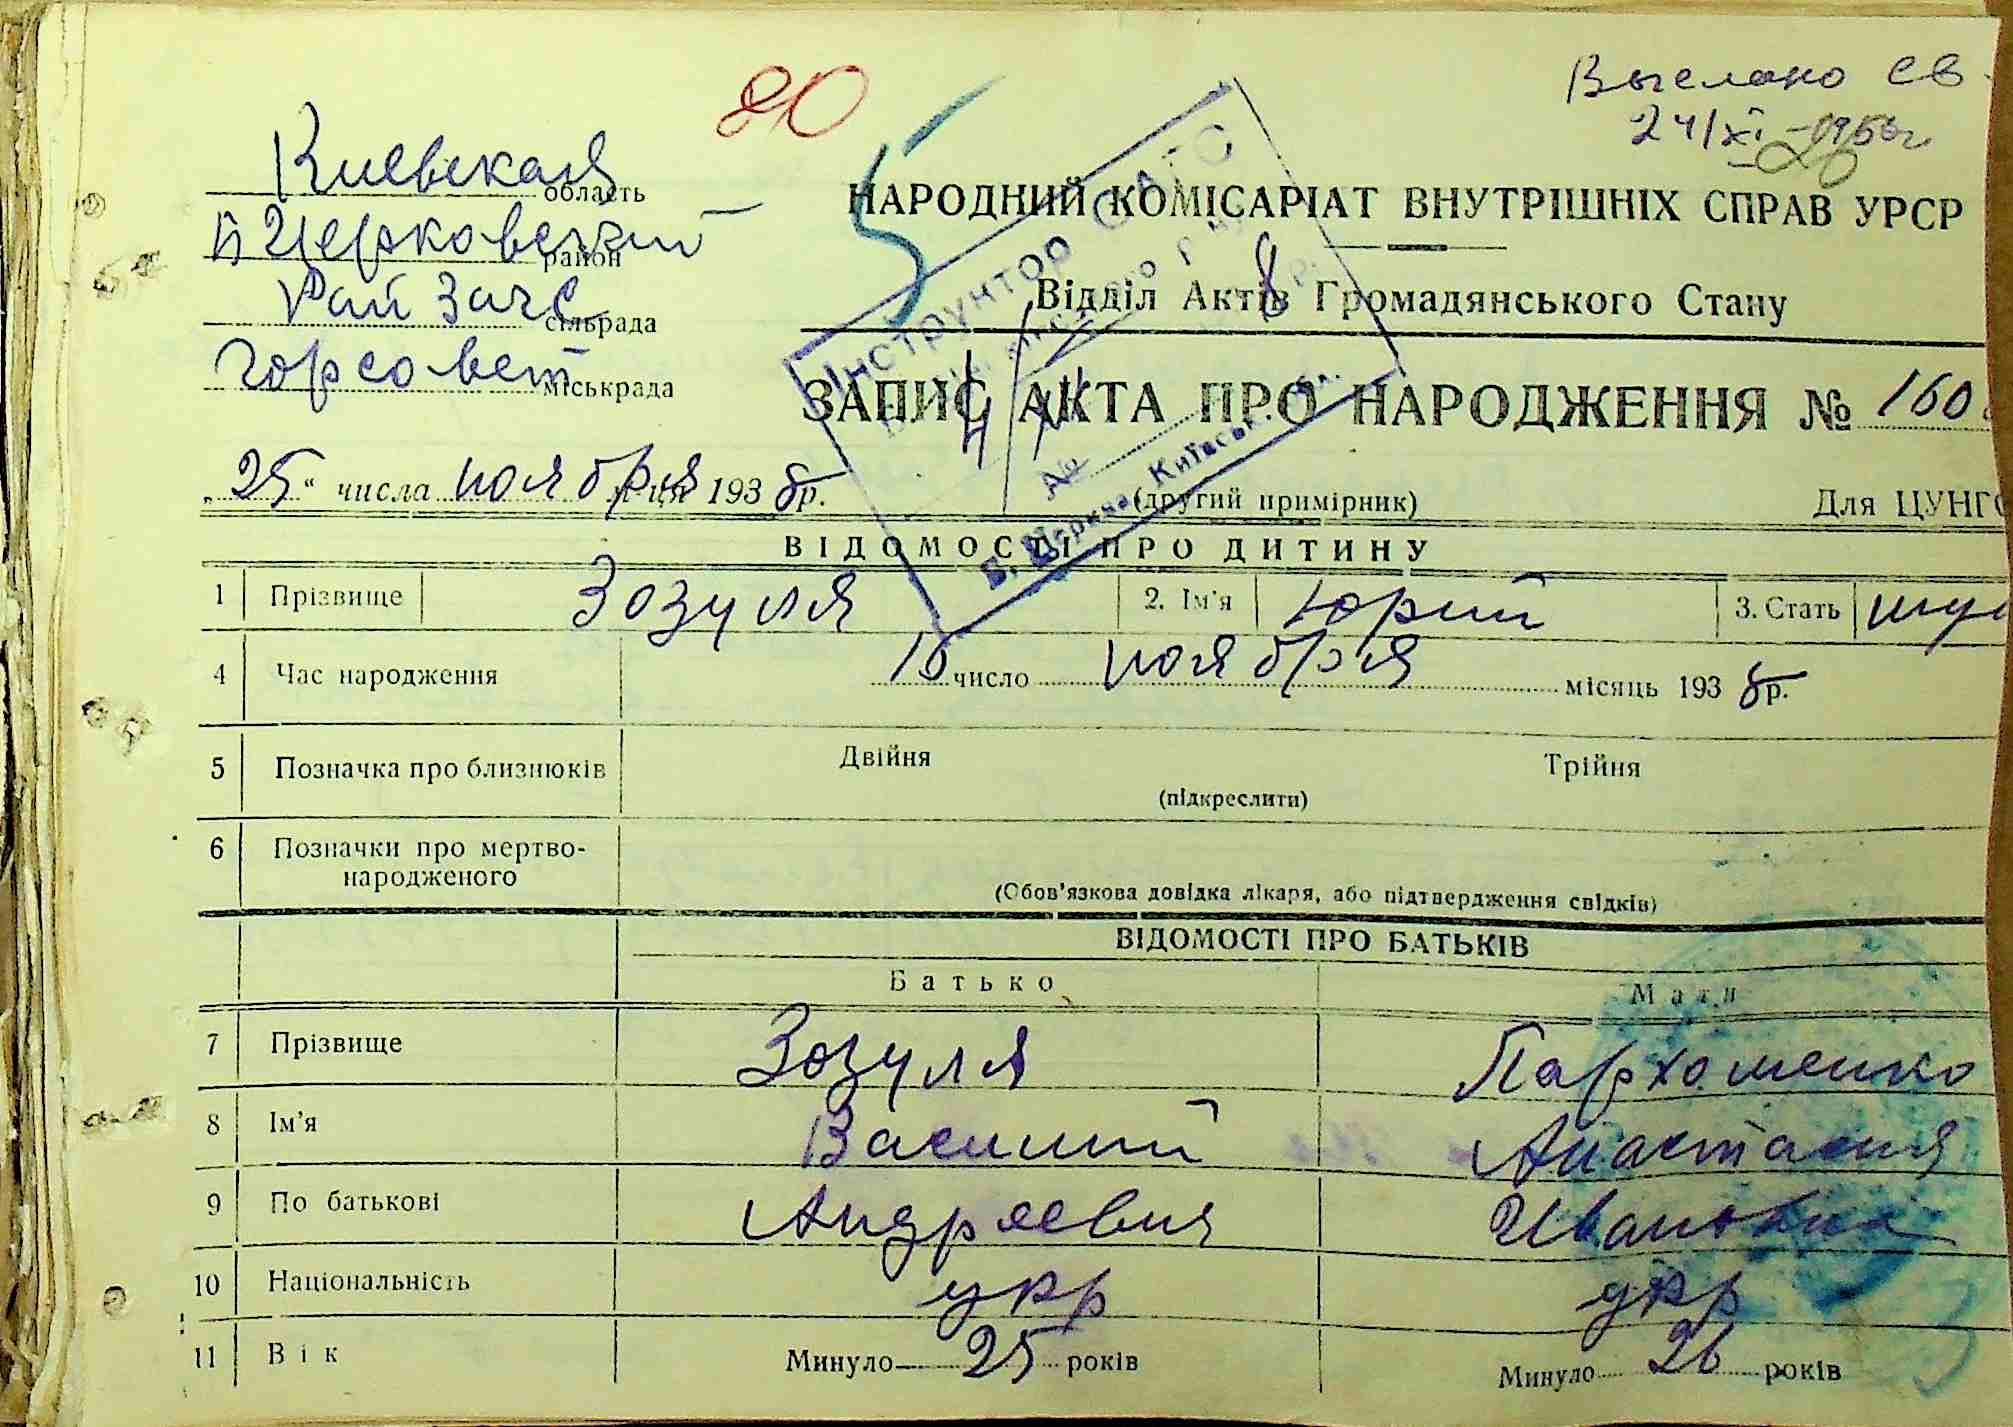 80
Выслано св
24/XI-1956г
Киевская область
Б Церковский район
Рай Загс сільрада
Горсовет міськрада
5
НАРОДНИЙ КОМІСАРІАТ ВНУТРІШНІХ СПРАВ УРСР
Відділ Актів Громадянського Стану
ЗАПИС АКТА ПРО НАРОДЖЕННЯ № 160
„25“ числа ноября м-ця 1938 р.
(другий примірник)
Для ЦУНГО
Інструктор ЗАГС
№
Б. Церква, Київськ.
ВІДОМОСТІ ПРО ДИТИНУ
1 Прізвище Зозуля 2. Ім'я Юрий 3. Стать муж
4 Час народження число ноября місяць 1938 р.
5 Позначка про близнюків Двійня Трійня
(підкреслити)
6 Позначки про мертво-
народженого
(Обов'язкова довідка лікаря, або підтвердження свідків)
ВІДОМОСТІ ПРО БАТЬКІВ
Батько Мати
7 Прізвище Зозуля Пархоменко
8 Ім'я Василий Анастасия
9 По батькові Андреевич Ивановна
10 Національність укр укр
11 Вік Минуло 25 років Минуло 26 років